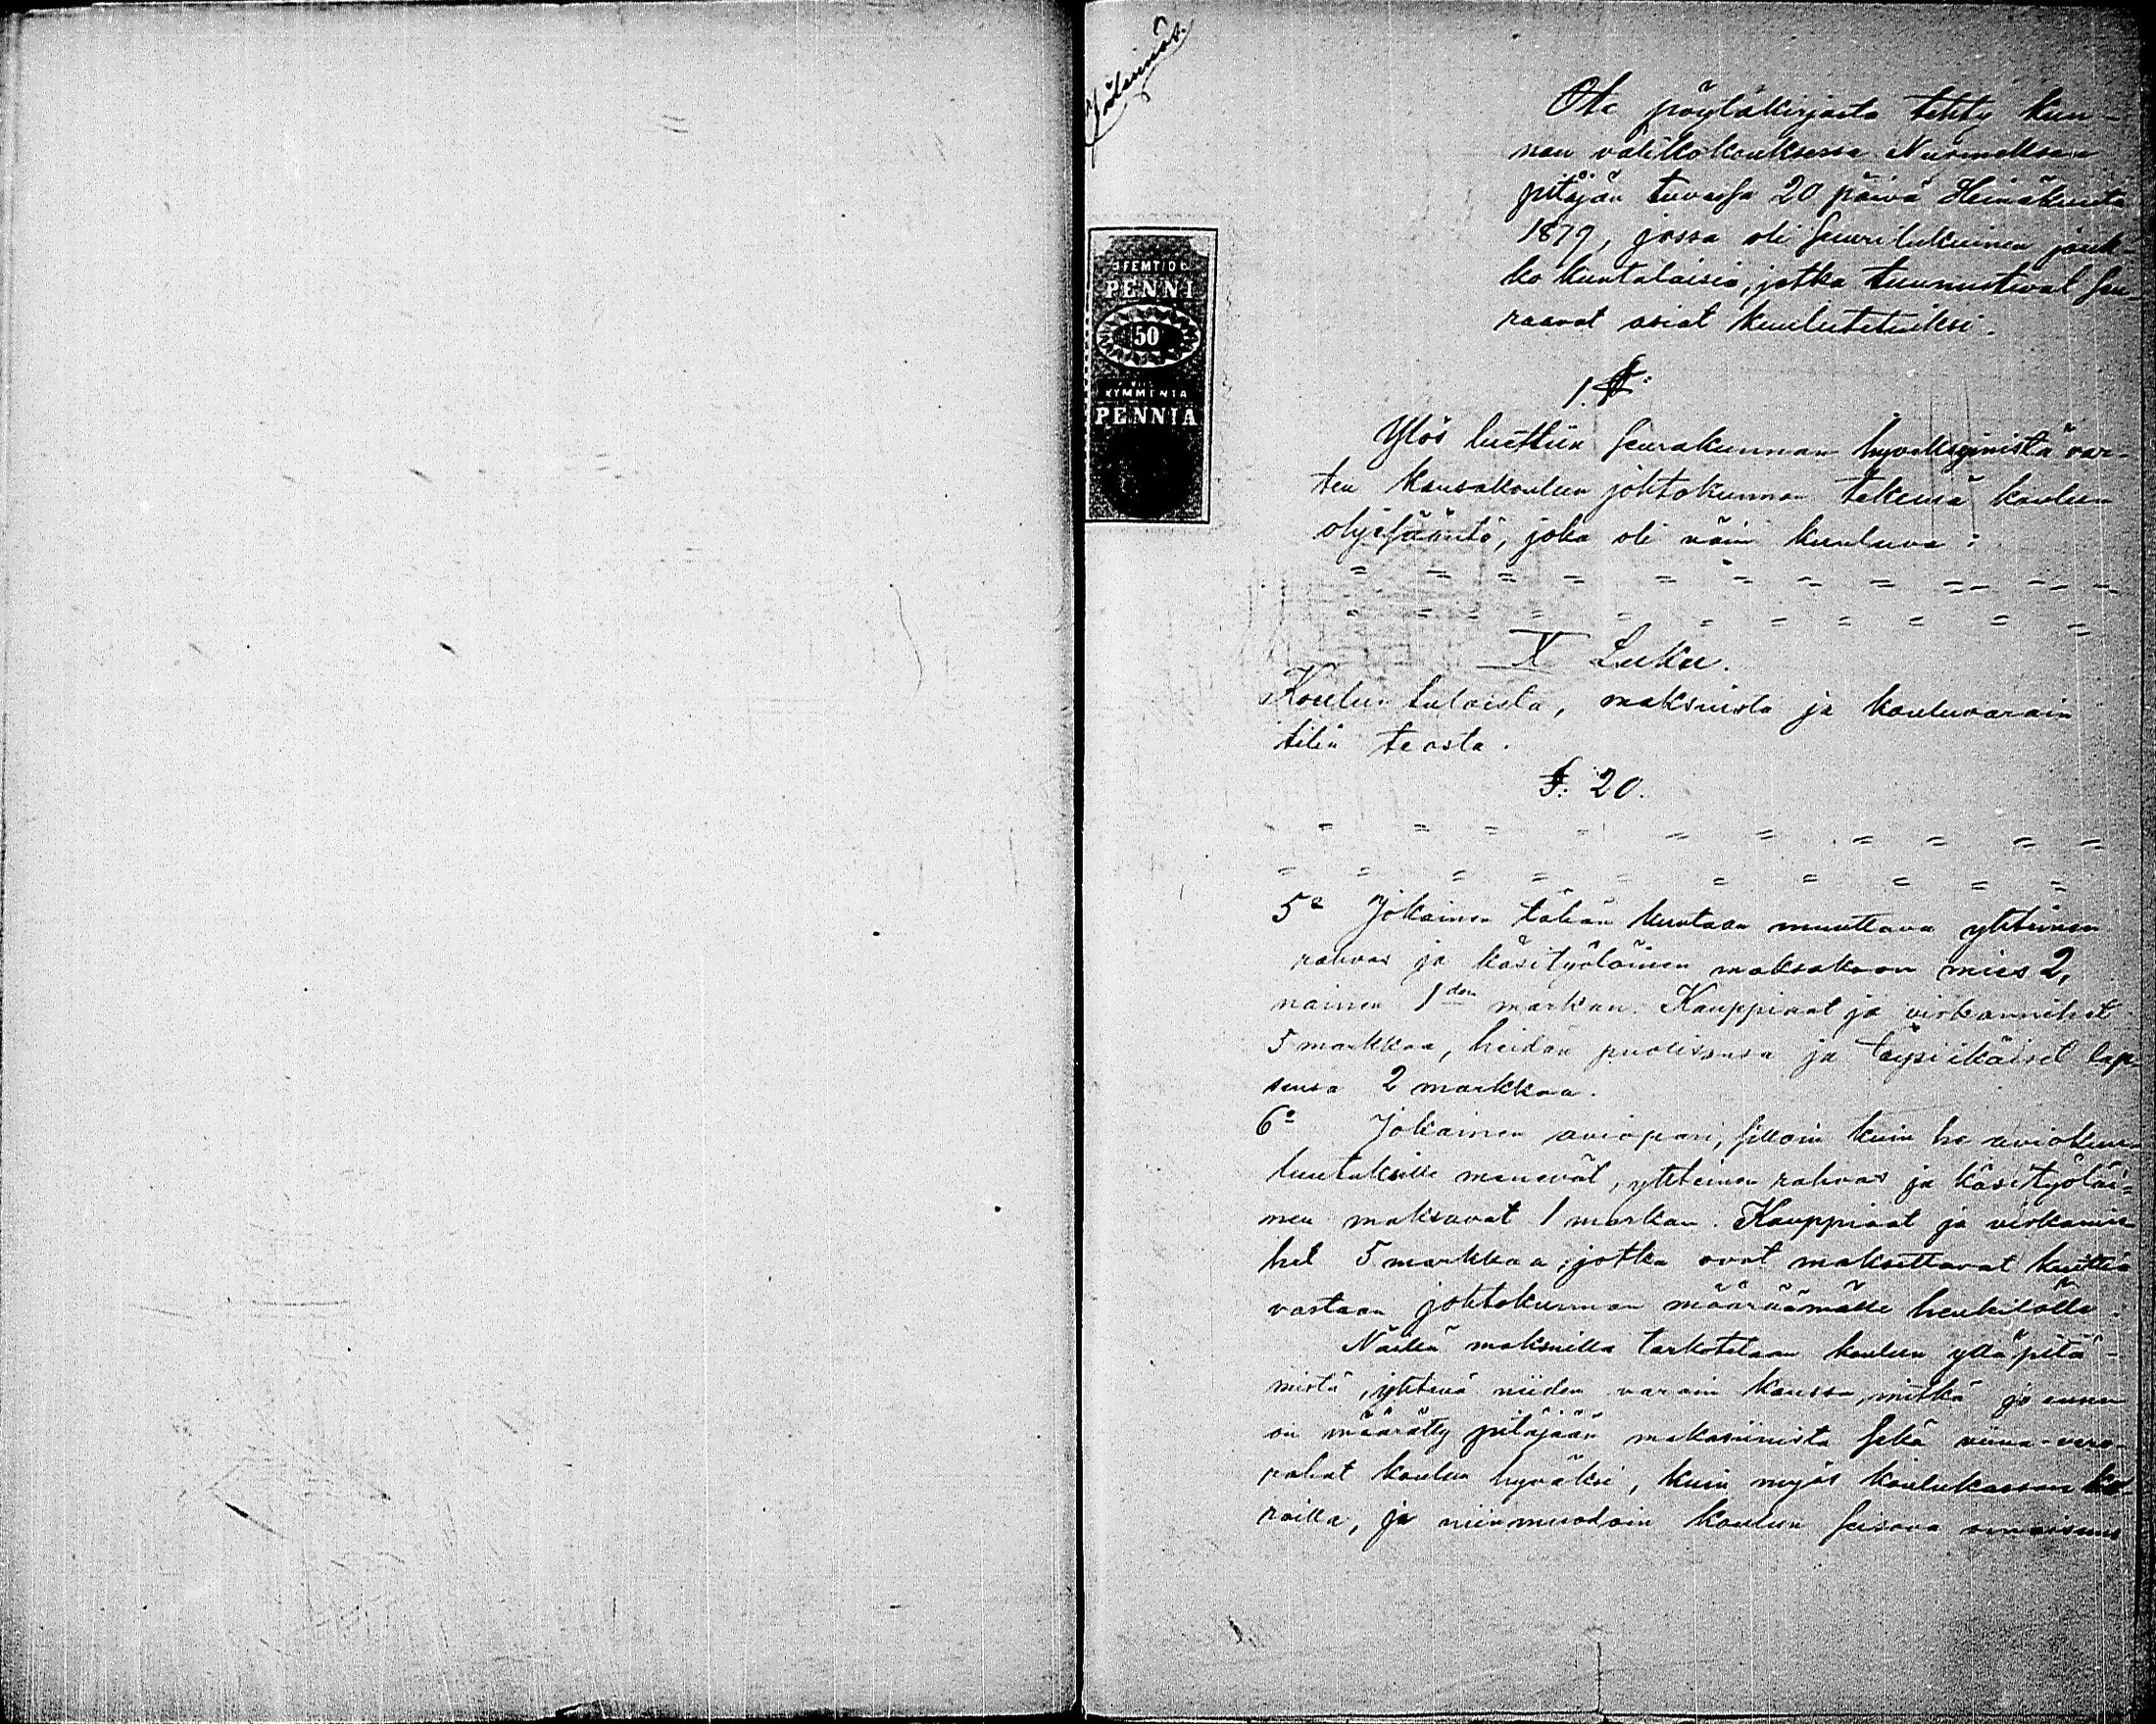 Jäljennös.
Ote pöytäkirjasta tehty kun-
nan välikokouksessa Nurmeksen
pitäjän tuvassa 20 päivä Heinäkuuta
1879, jossa oli suurilukuinen jouk-
ko kuntalaisia, jotka tunnustivat seu-
raavat asiat kuulutetuiksi.
FEMTIO
PENNI
50
KYMMENTÄ
PENNIÄ
1 §:
Ylös luettiin seurakunnan hyväksymistä var-
ten kansakoulun johtokunnan tekemä koulun
ohjesääntö, joka oli näin kuuluva:
= = = = = = = = = = = =
= = = = = = = = = =
X Luku.
Koulun tuloista, maksuista ja kouluvarain
tilin teosta.
§: 20.
= = = = = = = = = =
= = = = = = = = = =
5o Jokainen tähän kuntaan muuttava yhteinen
rahvas ja käsityöläinen maksakoon mies 2,
nainen 1den markan. Kauppiaat ja virkamiehet
5 markkaa, heidän puolisonsa ja täysi ikäiset lap-
sensa 2 markkaa.
6o Jokainen aviopari, silloin kuin he aviokuu-
luutuksille menevät, yhteinen rahvas ja käsityöläi=
nen maksavat 1 markan. Kauppiaat ja virkamie-
het 5 markkaa, jotka ovat maksettavat kuittia
vastaan johtokunnan määräämälle henkilölle.
Näillä maksuilla tarkotetaan koulun ylläpitä-
mistä, yhtenä niiden varain kanssa, mitkä jo ennen
on määrätty pitäjään makasiinista sekä viina-vero-
rahat koulun hyväksi, kuin myös koulukassan ko-
roilla, ja niinmuodoin koulun seisova omaisuus